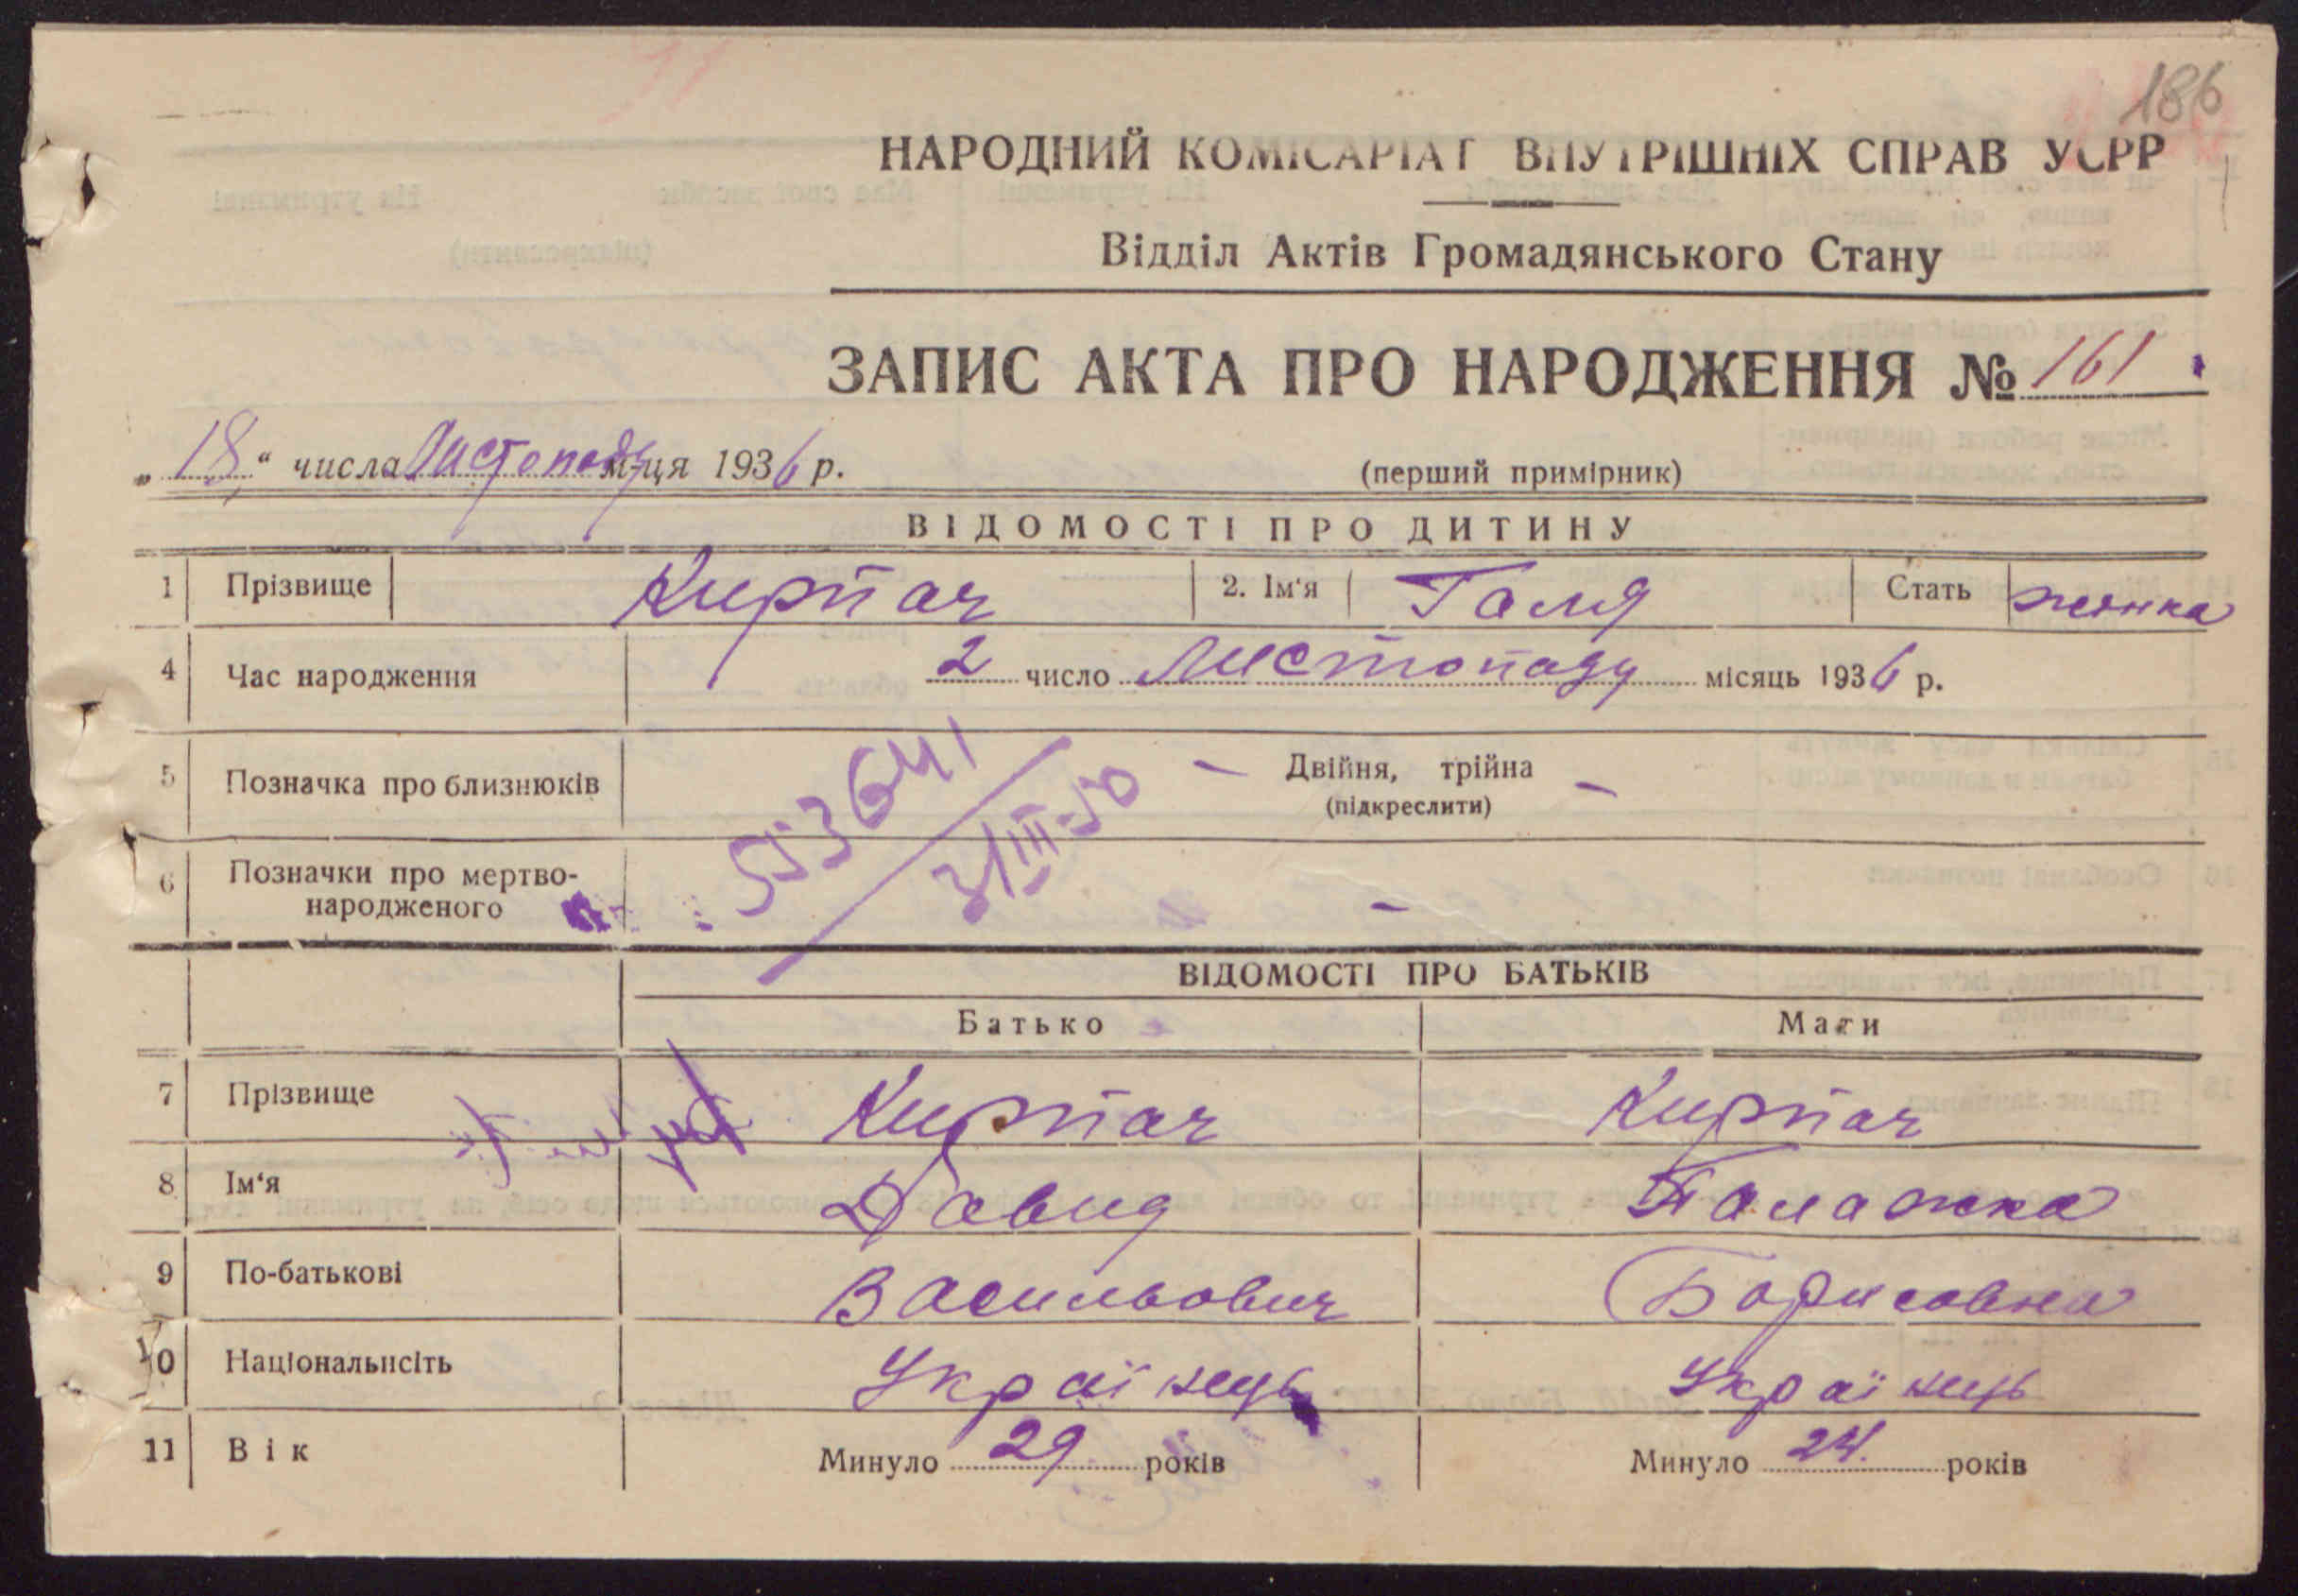 186
НАРОДНИЙ КОМІСАРІАТ ВНУТРІШНІХ СПРАВ УСРР
Відділ Актів Громадянського Стану
ЗАПИС АКТА ПРО НАРОДЖЕННЯ № 161
„18“ числа Листопаду м-ця 1936 р.
(перший примірник)
ВІДОМОСТІ ПРО ДИТИНУ
1 Прізвище Кирпач 2. Ім‘я Галя Стать жінка
4 Час народження 2 число Листопаду місяць 1936 р.
5 Позначка про близнюків - Двійня, трійна -
(підкреслити)
553641
31/III-50
6 Позначки про мертво-
народженого -
ВІДОМОСТІ ПРО БАТЬКІВ
Батько Мати
7 Прізвище Кирпач Кирпач
8 Ім‘я Давид Палажка
9 По-батькові Васильович Борисовна
10 Національність Українець Українець
11 Вік Минуло 29 років Минуло 24 років